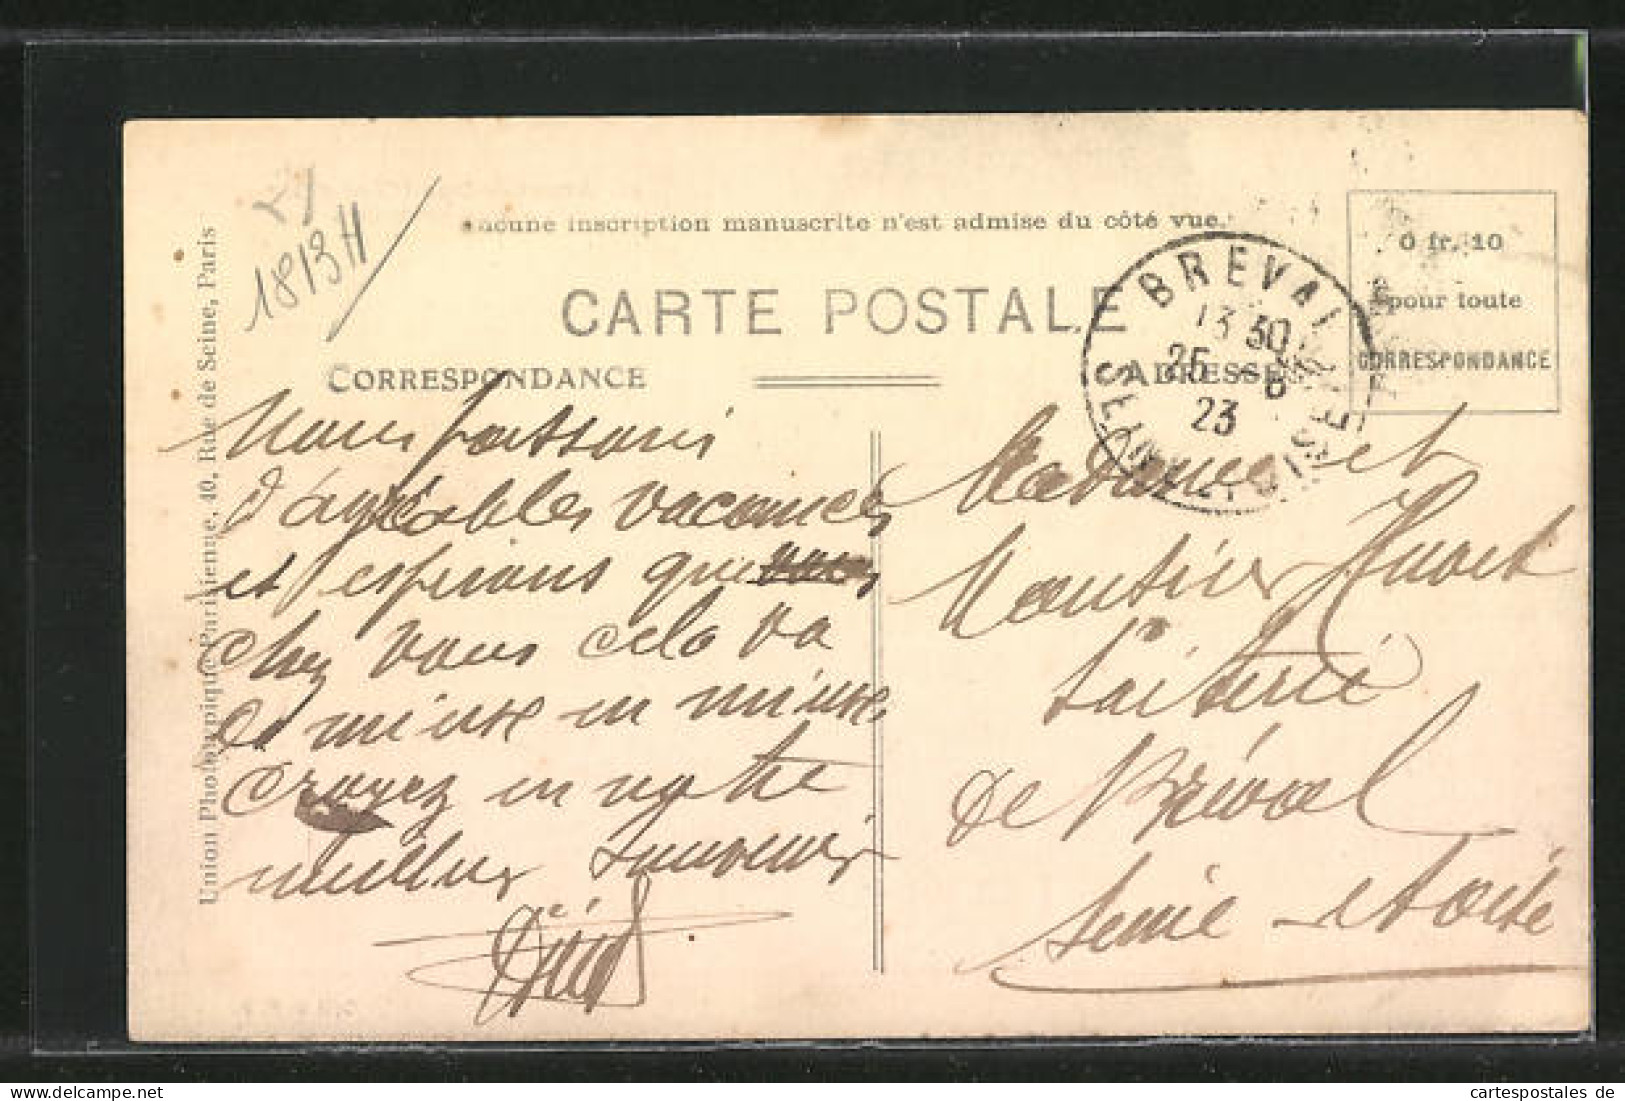 1813 H
Aucune inscription manuscrite n'est admise du côté vue.
CARTE POSTALE
CORRESPONDANCE
ADRESSE
0 fr. 10
pour toute
CORRESPONDANCE
BREVAL
13 30
26 - 6
23
SEINE-ET-OISE
Nous passons
d'agréables vacances
et espérons que
chez vous cela va
de mieux en mieux
croyez en notre
meilleur souvenir
Madame et
Monsieur Huvet
Laiterie
de Bréval
Seine-et-Oise
Union Photographique Parisienne, 40, Rue de Seine, Paris
cartespostales de